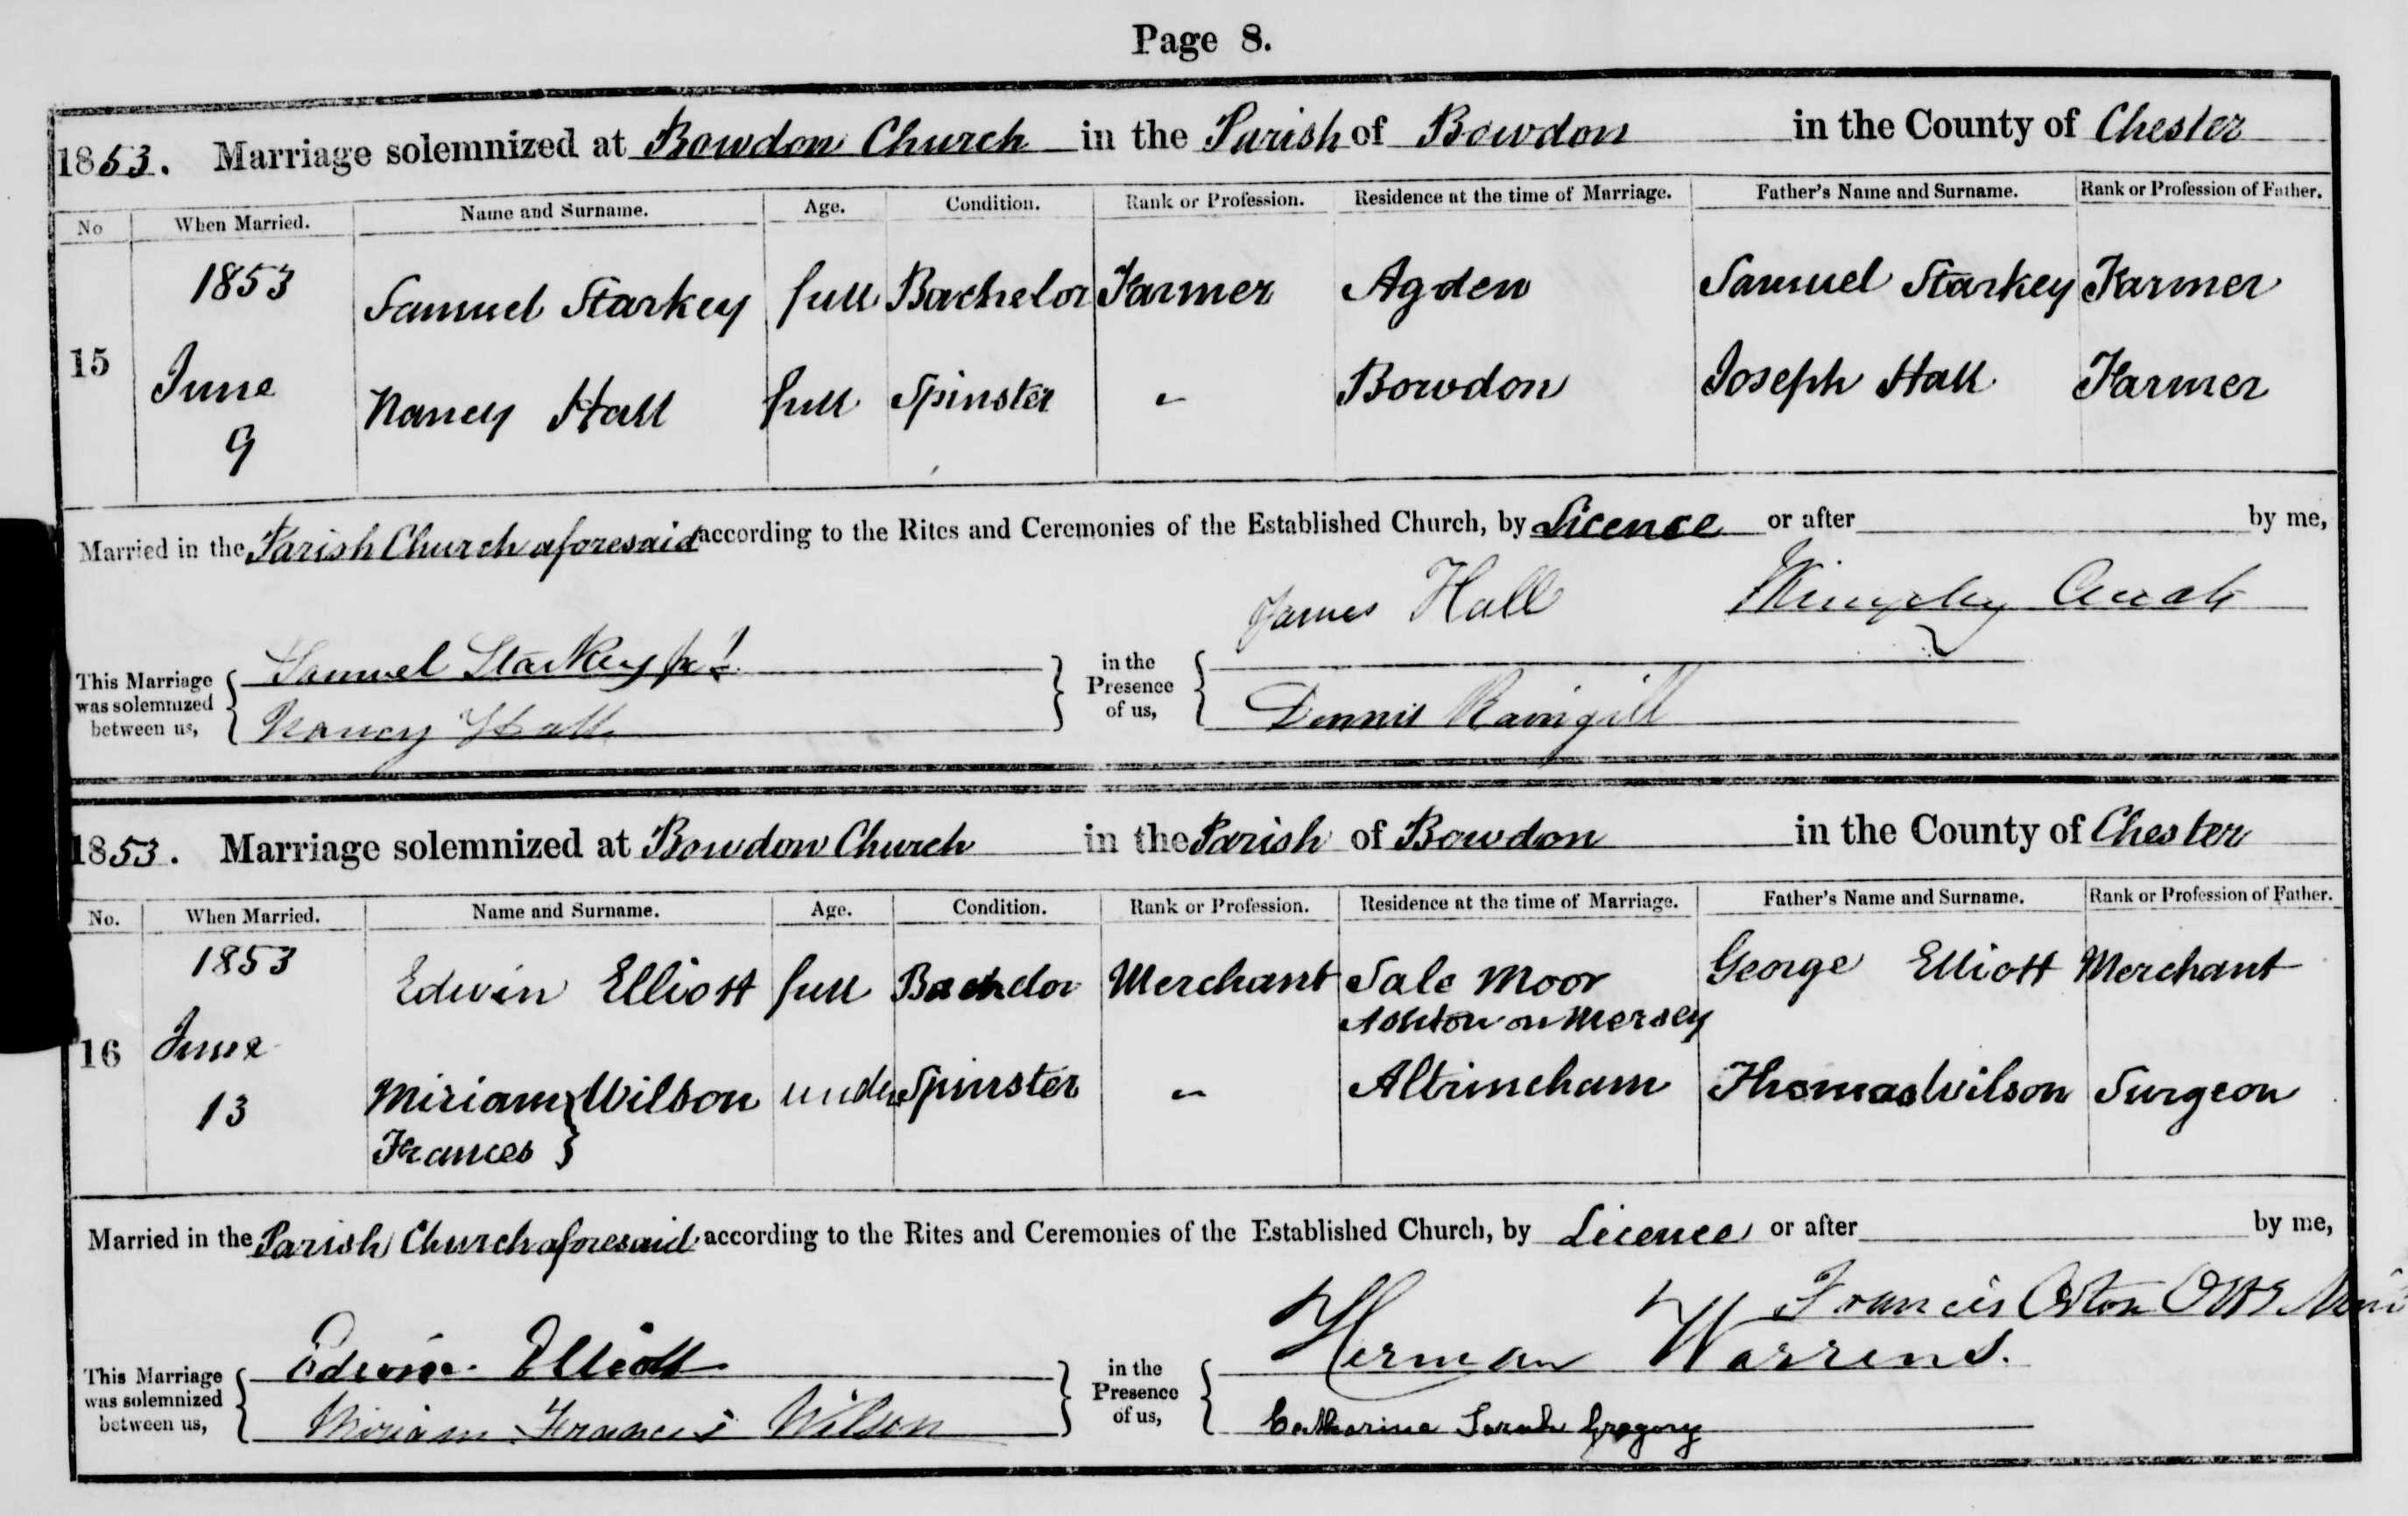 Page 8.
1853. Marriage solemnized at Bowdon Church in the Parish of Bowdon in the County of Chester
No When Married. Name and Surname. Age. Condition. Rank or Profession. Residence at the time of Marriage. Father's Name and Surname. Rank or Profession of Father.
1853 Samuel Starkey full Bachelor Farmer Agden Samuel Starkey Farmer
15 June 9 Nancy Hall full Spinster - Bowdon Joseph Hall Farmer
Married in the Parish Church aforesaid according to the Rites and Ceremonies of the Established Church, by Licence or after by me,
James Hall
This Marriage was solemnized between us, Samuel Starkey in the Presence of us,
Nancy Hall Dennis Raingill
1853. Marriage solemnized at Bowdon Church in the Parish of Bowdon in the County of Chester
No. When Married. Name and Surname. Age. Condition. Rank or Profession. Residence at the time of Marriage. Father's Name and Surname. Rank or Profession of Father.
1853 Edwin Elliott full Bachelor Merchant Sale Moor George Elliott Merchant
Ashton on Mersey
16 June 13 Miriam } Wilson under Spinster - Altrincham Thomas Wilson Surgeon
Frances }
Married in the Parish Church aforesaid according to the Rites and Ceremonies of the Established Church, by Licence or after by me,
Francis Orton
This Marriage was solemnized between us, Edwin Elliott in the Presence of us, Herman Warrens.
Miriam Frances Wilson Catharine Sarah Gregory